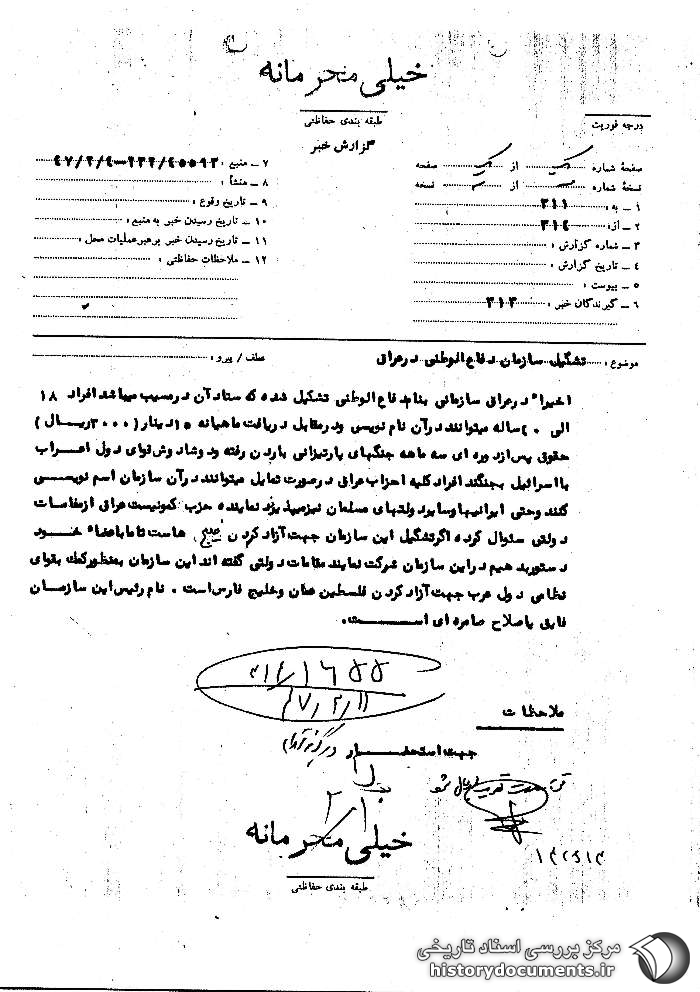 خیلی محرمانه
طبقه بندی حفاظتی
درجه فوریت
گزارش خبر
صفحهٔ شماره یک از یک صفحه
نسخهٔ شماره از نسخه
۱ ـ به : ۳۱۱
۲ ـ از : ۳۱٤
۳ ـ شماره گزارش :
٤ ـ تاریخ گزارش :
۵ ـ پیوست :
٦ ـ گیرندگان خبر : ۳۱۳
۷ ـ منبع :
۸ ـ منشأ :
۹ ـ تاریخ وقوع :
۱۰ ـ تاریخ رسیدن خبر به منبع :
۱۱ ـ تاریخ رسیدن خبر برهبر عملیات محل :
۱۲ ـ ملاحظات حفاظتی :
موضوع : تشکیل سازمان دفاع الوطنی در عراق
عطف / پیرو :
اخیراً در عراق سازمانی بنام دفاع الوطنی تشکیل شده که ستاد آن در مسیب میباشد افراد ۱۸
الی ٤۰ ساله میتوانند در آن نام نویسی و در مقابل دریافت ماهیانه ۱۵ دینار (۳۰۰۰ ریال)
حقوق پس از دوره ای سه ماهه جنگهای پارتیزانی باردن رفته و دوشادوش قوای دول اعراب
با اسرائیل بجنگند افراد کلیه احزاب عراق در صورت تمایل میتوانند در آن سازمان اسم نویسی
کنند وحتی ایرانیها و سایر دولتهای مسلمان نیز میپذیرد نماینده حزب کمونیست عراق از مقامات
دولتی سئوال کرده اگر تشکیل این سازمان جهت آزاد کردن خلیج هاست تا ما باعضاء خود
دستور بدهیم در این سازمان شرکت نمایند مقامات دولتی گفته اند این سازمان بمنظور کمک بقوای
نظامی دول عرب جهت آزاد کردن فلسطین عمان وخلیج فارس است . نام رئیس این سازمان
فایق یا صلاح صامره ای است .
۳۱٤/۱٦۵۵
٤۷/۲/۱۱
ملاحظات
جهت استحضار
خیلی محرمانه
طبقه بندی حفاظتی
مرکز بررسی اسناد تاریخی
historydocuments.ir